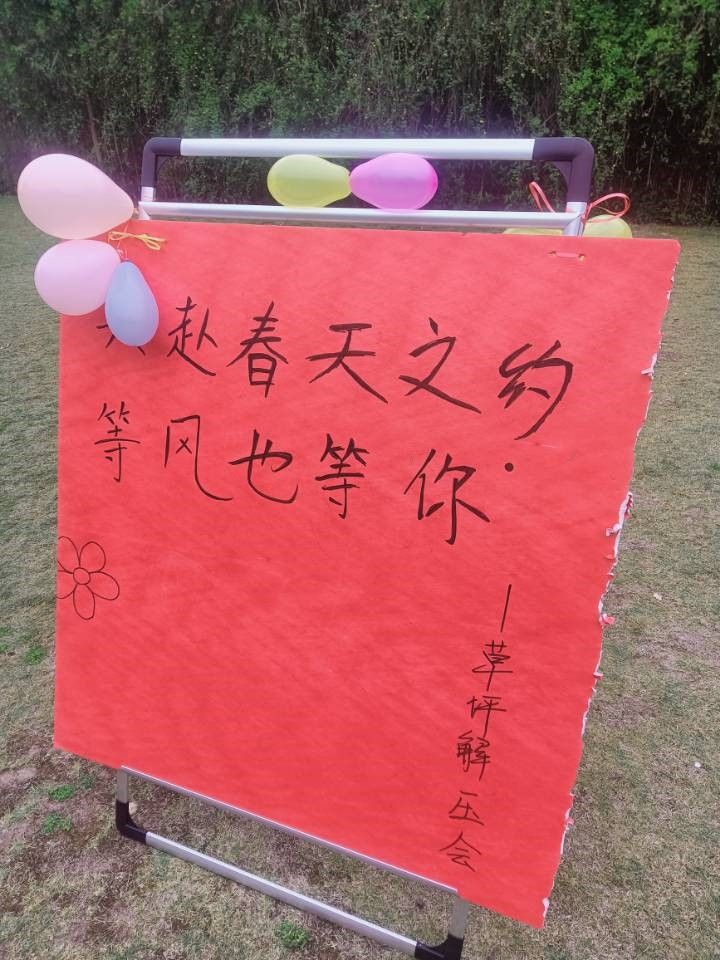 赴春天之约
等风也等你.
—草坪解压会